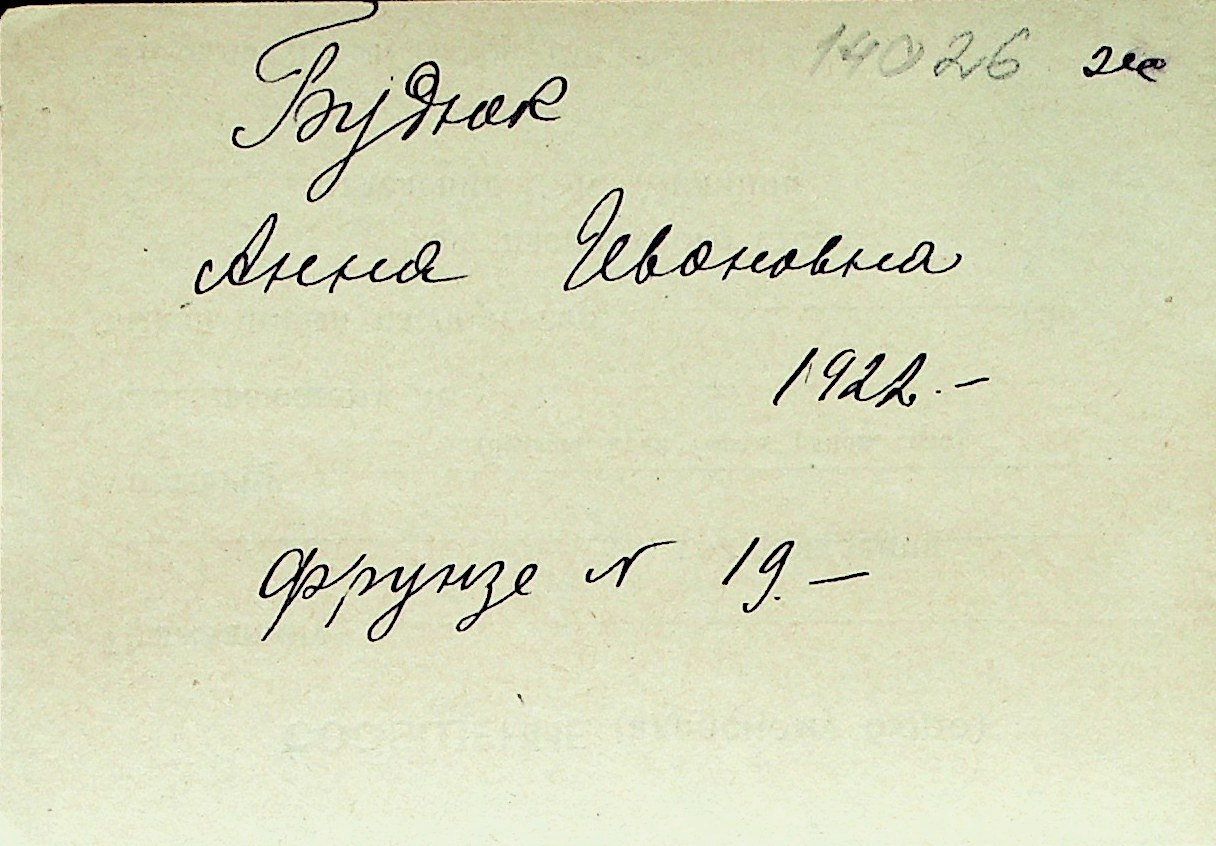 14026 же
Будюк
Анна Ивановна
1922.-
Фрунзе N 19.-